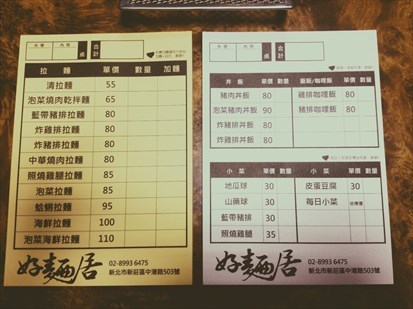 外帶 內用 桌 合計
拉麵 單價 數量 加麵
清拉麵 55
泡菜燒肉乾拌麵 65
藍帶豬排拉麵 80
炸雞排拉麵 80
炸豬排拉麵 80
中華燒肉拉麵 80
照燒雞腿拉麵 85
泡菜拉麵 85
蛤蜊拉麵 95
海鮮拉麵 100
泡菜海鮮拉麵 110
好麵居
02-8993 6475
新北市新莊區中港路503號
外帶 內用 桌 合計
丼飯 單價 數量 蛋飯/咖哩飯 單價 數量
豬肉丼飯 80 雞排咖哩飯 80
泡菜豬肉丼飯 90 豬排咖哩飯 80
炸雞排丼飯 80
炸豬排丼飯 80
小菜 單價 數量 小菜 單價 數量
地瓜球 30 皮蛋豆腐 30
山藥球 30 每日小菜
藍帶豬排 30
照燒雞腿 35
好麵居
02-8993 6475
新北市新莊區中港路503號